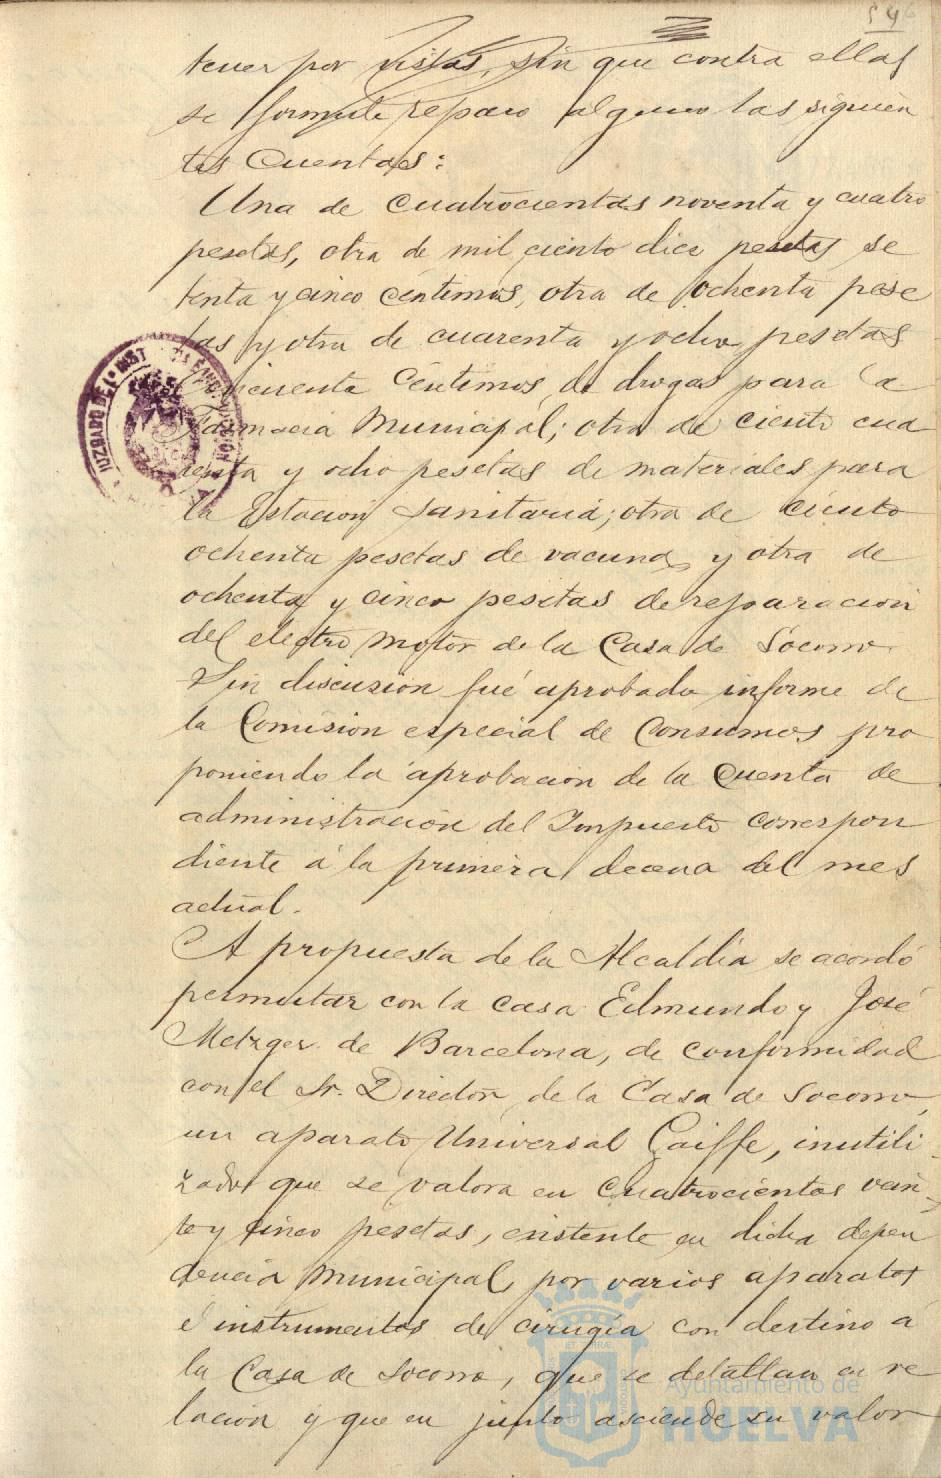 54
tener por vistas, sin que contra ellas
se formule reparo alguno las siguien
tes cuentas:
Una de cuatrocientas noventa y cuatro
pesetas, otra de mil ciento diez pesetas se
tenta y cinco centimos, otra de ochenta pese
tas y otra de cuarenta y ocho pesetas
cincuenta centimos, de drogas para la
Farmacia Municipal; otra de ciento cua
renta y ocho pesetas de materiales para
la Estación Sanitaria; otra de ciento
ochenta pesetas de vacuna, y otra de
ochenta y cinco pesetas de reparación
del electro motor de la Casa de Socorro.
Sin discusión fué aprobado informe de
la Comisión especial de Consumos pro
poniendo la aprobación de la cuenta de
administración del Impuesto correspon
diente á la primera decena del mes
actual.
A propuesta de la Alcaldía se acordó
permutar con la casa Edmundo y José
Metzger de Barcelona, de conformidad
con el Sr. Director de la Casa de Socorro,
un aparato Universal Gaiffe, inutili
zado que se valora en cuatrocientas vein
te y cinco pesetas, existente en dicha depen
dencia municipal, por varios aparatos
é instrumentos de cirugía con destino á
la Casa de Socorro, que se detallan en re
lación y que en junto asciende su valor
JUZGADO DE 1ª INST
Ayuntamiento de
HUELVA